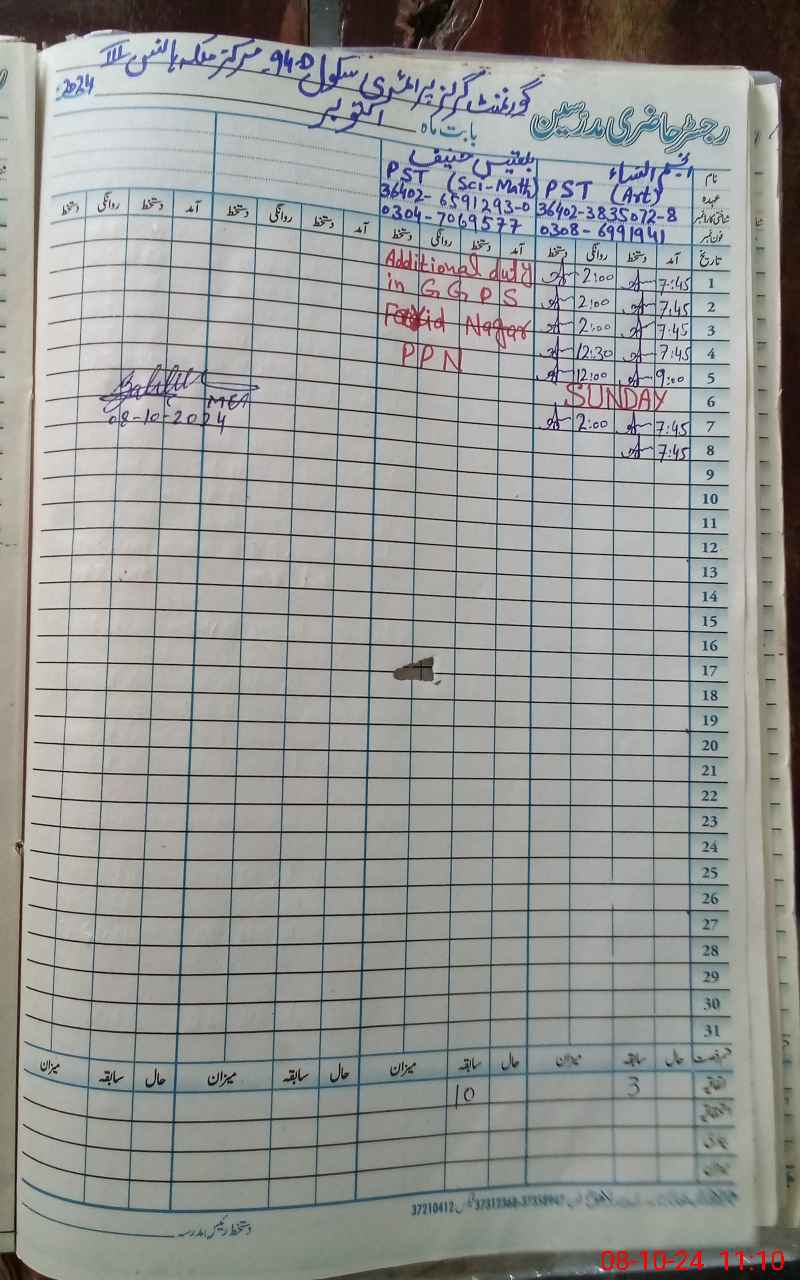 گورنمنٹ گرلز پرائمری سکول 94-D مرکز ملکہ ہانس III
رجسٹر حاضری مدرسین
بابت ماہ اکتوبر 2024
نام انجم النساء بلقیس حنیف
عہدہ PST (Art) PST (Sci-Math)
شناختی کارڈ نمبر 36402-3835072-8 36402-6591293-0
فون نمبر 0308-6991941 0304-7069577
تاریخ آمد دستخط روانگی دستخط آمد دستخط روانگی دستخط آمد دستخط روانگی دستخط آمد دستخط روانگی دستخط
1 7:45 2:00 Additional duty
2 7:45 2:00 in GGPS
3 7:45 2:00 Farid Nagar
4 7:45 12:30 PPN
5 9:00 12:00
6 SUNDAY
7 7:45 2:00 MEA
8 7:45 08-10-2024
9
10
11
12
13
14
15
16
17
18
19
20
21
22
23
24
25
26
27
28
29
30
31
حال سابقہ میزان حال سابقہ میزان حال سابقہ میزان حال سابقہ میزان
اتفاقیہ 3 10
میزان
37210412
دستخط رئیس مدرسہ
08-10-24 11:10